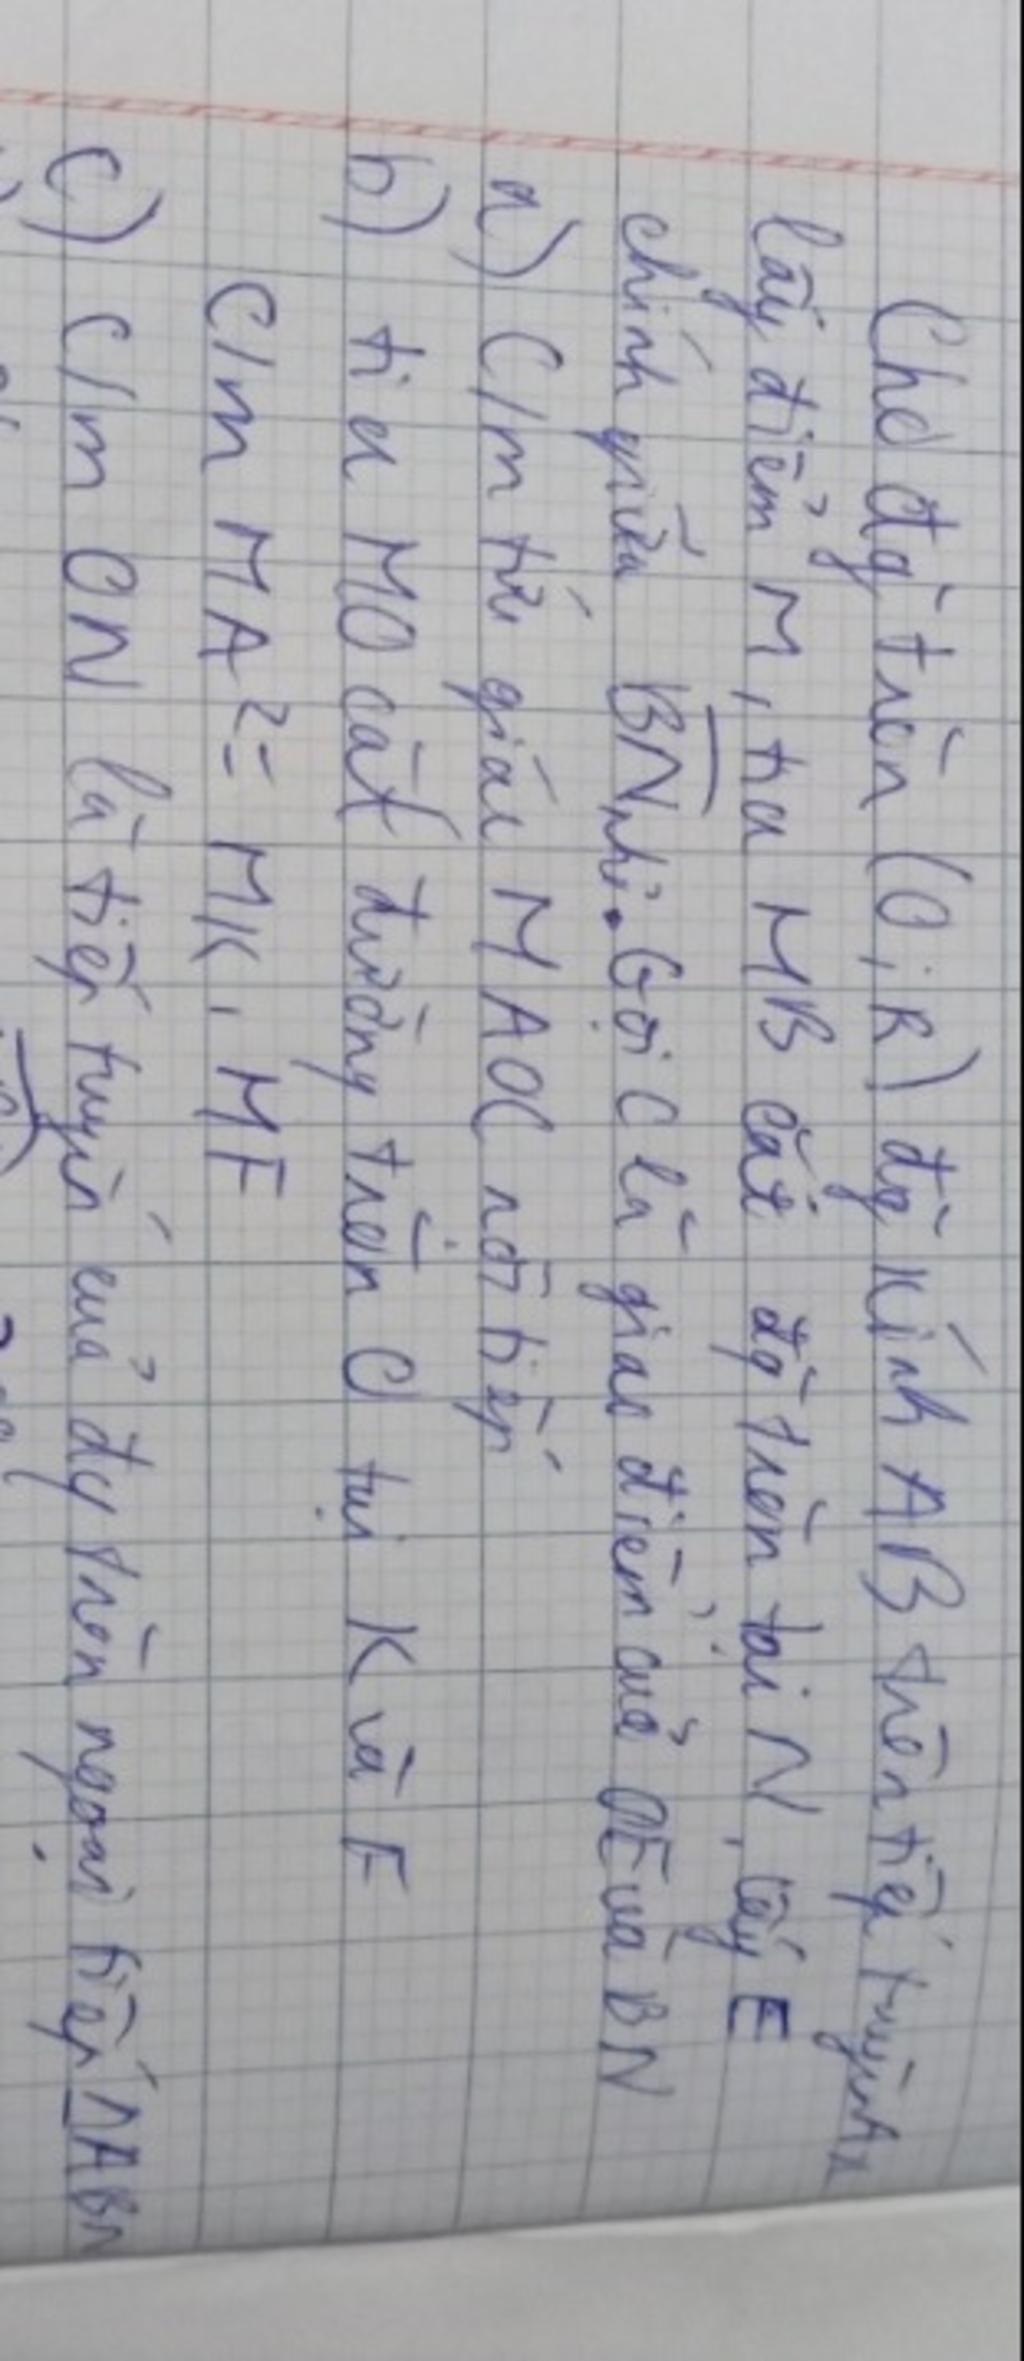 Cho đg tròn (O;R) đg kính AB trên tiếp tuyến Ax
lấy điểm M, tia MB cắt đg tròn tại N, lấy E
chính giữa BN nhỏ. Gọi C là giao điểm của OE và BN
a) C/m tứ giác MAOC nội tiếp
b) tia MO cắt đường tròn O tại K và F
C/m MA² = MK. MF
c) C/m ON là tiếp tuyến của đg tròn ngoại tiếp ΔABN